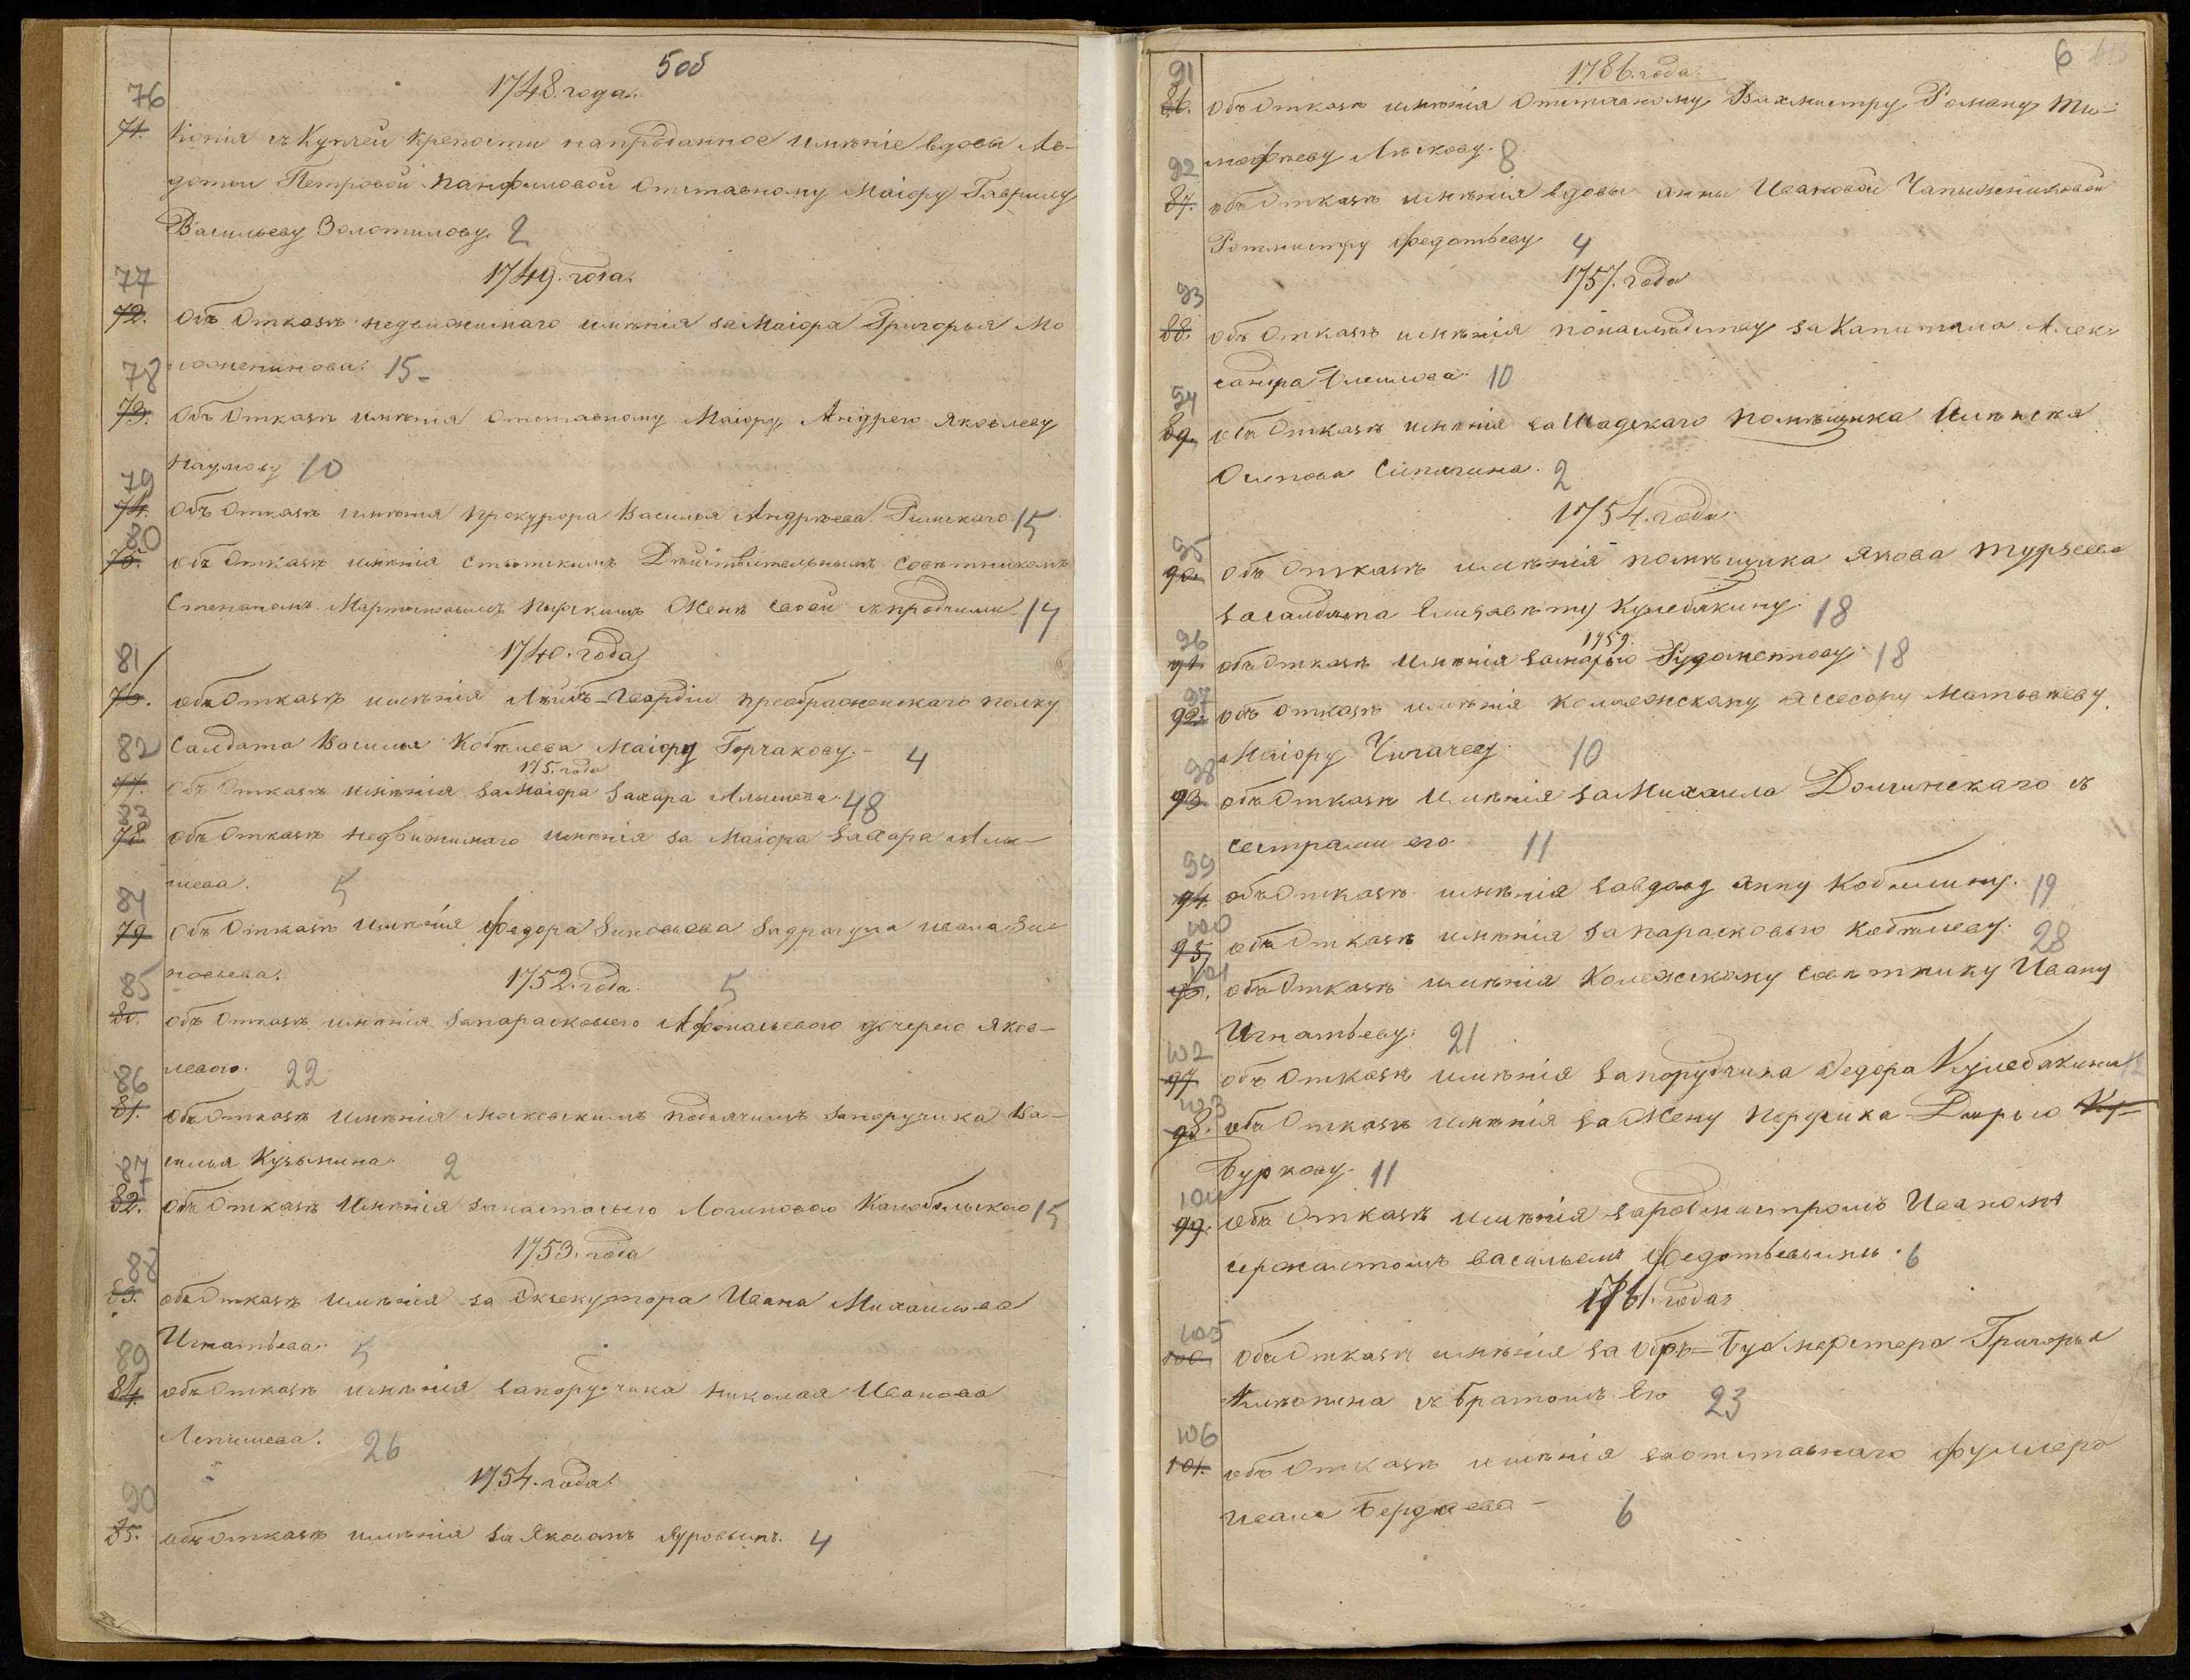 5 об
1748. года.
76
71. Копія съ Купчей крепости напроданное имѣніе вдовы Ав-
дотьи Петровой Панфиловой отставному Маіору Гаврилу
Васильеву Золотилову. 2
1749. года.
77
72. Объ Отказѣ недвижимаго имѣнія за Маіора Григорья Мо
78
15
73. Объ Отказѣ имѣнія отставному Маіору Андрею Яковлеву
Наумову 10
79
74. Объ Отказѣ имѣнія прокурора Василья Андрѣева Римскаго. 15
80
75. объ Отказѣ имѣнія статскимъ Дѣйствительнымъ Советникомъ
Степаномъ Женѣ своей съпродчими 14
1740. года
81
76. объ Отказѣ имѣнія Лейбъ-Гвардіи преображенскаго полку
82 Салдата Василья Кобылева Маіору Горчакову. - 4
175. года
77. Объ Отказѣ имѣнія за Маіора Захара 48
83
78. объ Отказѣ недвижимаго имѣнія за Маіора Захара
5
84
79 объ Отказѣ имѣнія Федора Зиновьева Задрагуна ивана Зи-
новьева. 5
1752. года.
85
80. объ Отказѣ имѣнія Запарасковьею Афонасьевою дочерью Яков-
левою. 22
86
81. объ Отказѣ имѣнія московскимъ подьячимъ Запоручика Ва-
силья Кузьмина. 2
87
82. Объ Отказѣ имѣнія Занастасьею Логиновою 15
1753. года
88
83. объ Отказѣ имѣнія за Экзекутора Ивана Михайлова
Игнатьева. 5
89
84. объ Отказѣ имѣнія Запоручика Николая Иванова
26
1754. года.
90
85. объ Отказѣ имѣнія за Яковомъ 4
6
1786. года.
91
86. объ Отказѣ имѣнія Отставному Вахмистру Роману Ти-
мофѣеву 8
92
87. объ Отказѣ имѣнія вдовы анны Ивановой
Ротмистру Федотьеву 4
1757. года
93
88. объ Отказѣ имѣнія за Капитана Алек-
сандра 10
94
89. объ Отказѣ имѣнія за Шацкаго помѣщика
Осипова Сипягина. 2
1754. года
95
90. объ Отказѣ имѣнія помѣщика Якова
засалдата Елизавѣту Кулебякину. 18
1759.
96
91. объ Отказѣ имѣнія замарью 18
97
92. объ Отказѣ имѣнія коллежскому ассесору Матьвѣеву.
Маіору Чихачеву. 10
98
93. объ Отказѣ имѣнія за Михаила съ
сестрами его 11
99
94. объ Отказѣ имѣнія завдову Анну Кобылину. 19
100
95. объ Отказѣ имѣнія запарасковью Кобылеву. 28
101
96. объ Отказѣ имѣнія Колежскому Советнику Ивану
Игнатьеву. 21
102
97. объ Отказѣ имѣнія Запоручика Федора Кулебакина 12
103
98. объ Отказѣ имѣнія за Жену поручика Дарью Ку-
Буркову. 11
104
99. объ Отказѣ имѣнія Иваномъ
сержантомъ васильемъ Федотьевыми. 6
1761. года
105
100. объ Отказѣ имѣнія за Григорья
съ братомъ Его 23
106
101. объ Отказѣ имѣнія заотставнаго
Ивана Бердяева - 6